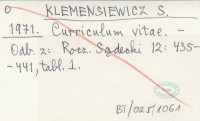 O KLEMENSIEWICZ S.
1971. Curriculum vitae. -
Odb. z: Rocz. Sądecki 12: 435-
-441, tabl. 1.
BT/025/1061